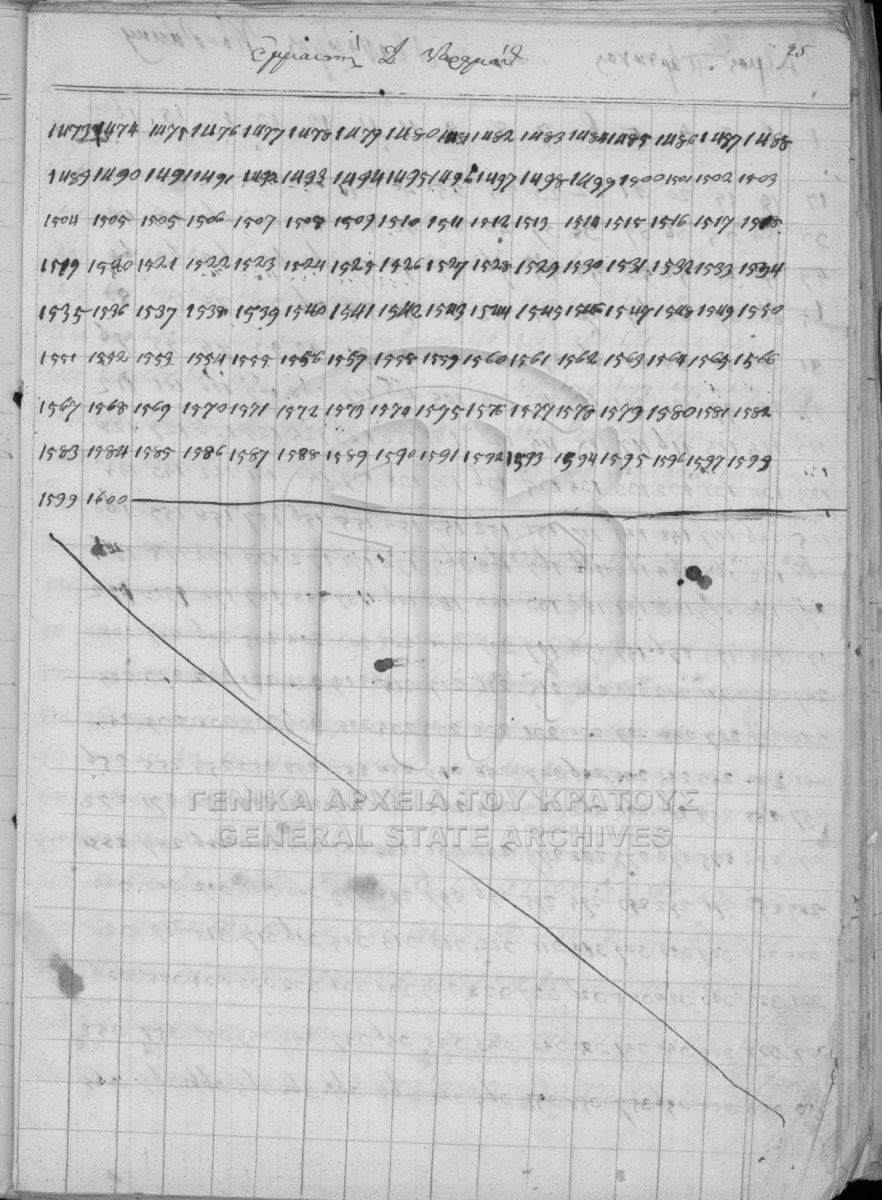 25
1473 1474 1475 1476 1477 1478 1479 1480 1481 1482 1483 1484 1485 1486 1487 1488
1489 1490 1491 1491 1492 1493 1494 1495 1496 1497 1498 1499 1500 1501 1502 1503
1504 1505 1505 1506 1507 1508 1509 1510 1511 1512 1513 1514 1515 1516 1517 1518
1519 1520 1521 1522 1523 1524 1525 1526 1527 1528 1529 1530 1531 1532 1533 1534
1535 1536 1537 1538 1539 1540 1541 1542 1543 1544 1545 1546 1547 1548 1549 1550
1551 1552 1553 1554 1555 1556 1557 1558 1559 1560 1561 1562 1563 1564 1565 1566
1567 1568 1569 1570 1571 1572 1573 1574 1575 1576 1577 1578 1579 1580 1581 1582
1583 1584 1585 1586 1587 1588 1589 1590 1591 1592 1593 1594 1595 1596 1597 1598
1599 1600
ΓΕΝΙΚΑ ΑΡΧΕΙΑ ΤΟΥ ΚΡΑΤΟΥΣ
GENERAL STATE ARCHIVES